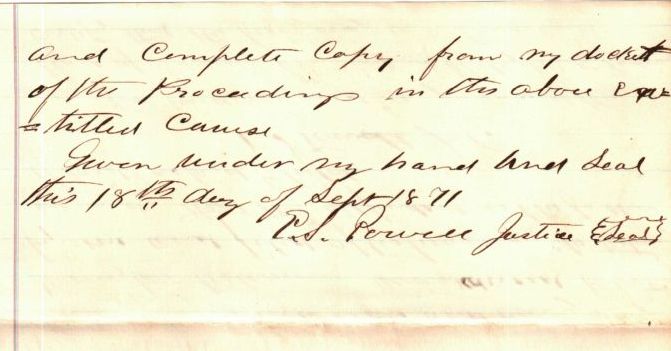 and Complete Copy from my docket
of the Proceedings in the above En=
=titled Cause
Given under my hand And Seal
this 18th day of Sept 1871
P.S. Powell Justice Seal